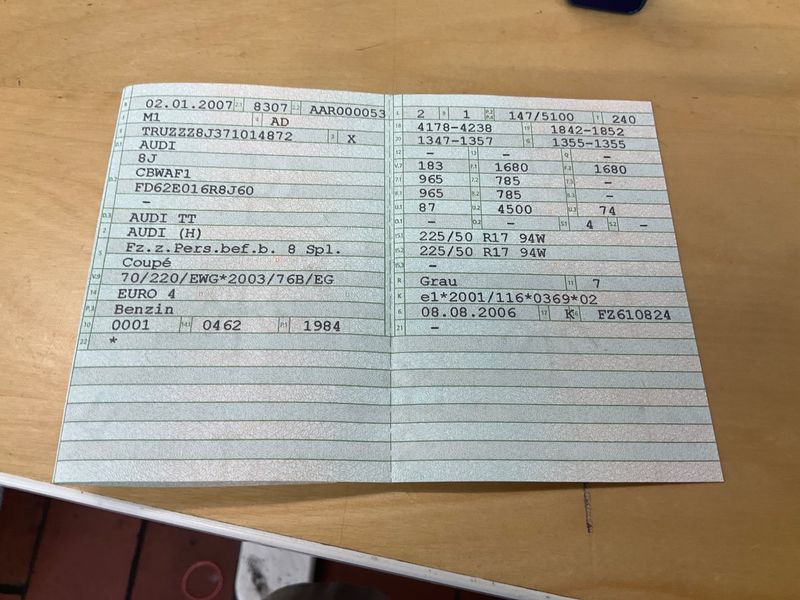 02.01.2007 8307 AAR000053
M1 AD
TRUZZZ8J371014872 X
AUDI
8J
CBWAF1
FD62E016R8J60
–
AUDI TT
AUDI (H)
Fz.z.Pers.bef.b. 8 Spl.
Coupé
70/220/EWG*2003/76B/EG
EURO 4
Benzin
0001 0462 1984
*
2 1 147/5100 240
4178-4238 1842-1852
1347-1357 1355-1355
– – –
183 1680 1680
965 785 –
965 785 –
87 4500 74
– – 4 –
225/50 R17 94W
225/50 R17 94W
–
Grau 7
e1*2001/116*0369*02
08.08.2006 K FZ610824
–